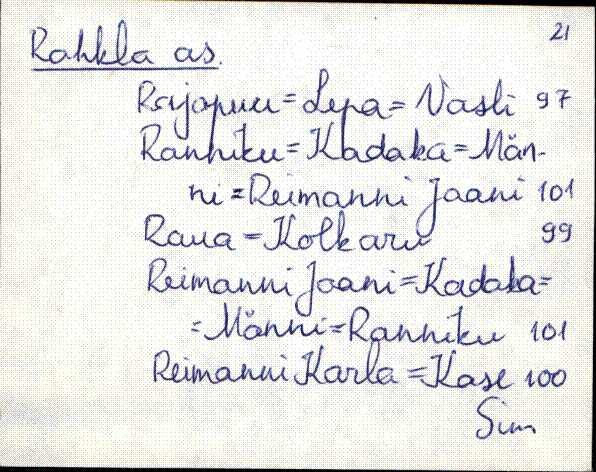 21
Rahkla as.
Rajapuu = Lepa = Vasli 97
Ranniku = Kadaka = Män-
ni = Reimanni Jaani 101
Raua = Kolkaru 99
Reimanni Jaani = Kadaka =
= Männi = Ranniku 101
Reimanni Karla = Kase 100
Sim